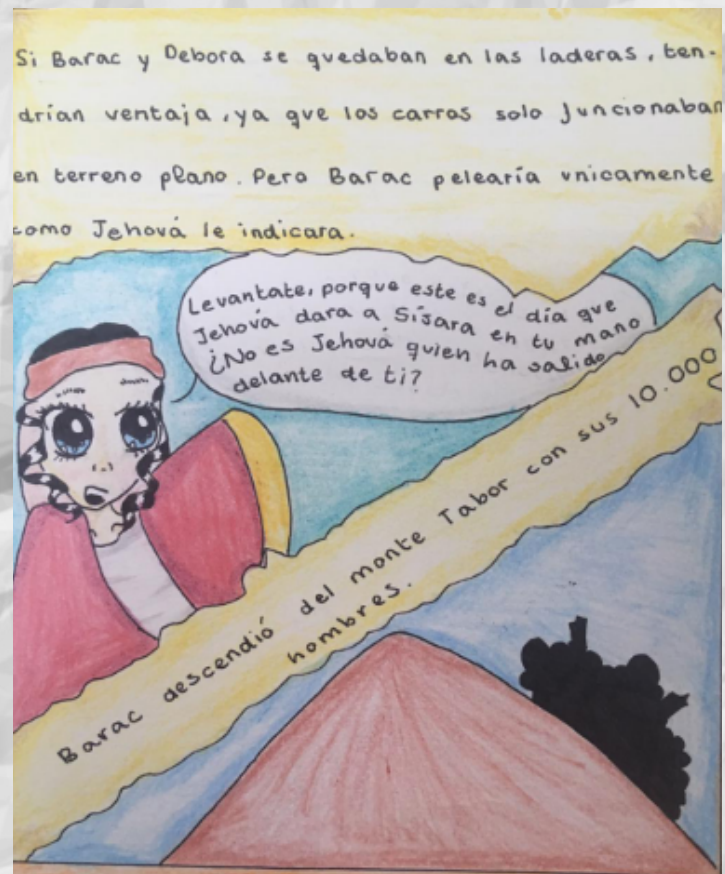 Si Barac y Debora se quedaban en las laderas, ten-
drían ventaja, ya que los carros solo funcionaban
en terreno plano. Pero Barac pelearía unicamente
como Jehová le indicara.
Levantate, porque este es el día que
Jehová dara a Sísara en tu mano
¿No es Jehová quien ha salido
delante de ti?
Barac descendió del monte Tabor con sus 10.000
hombres.